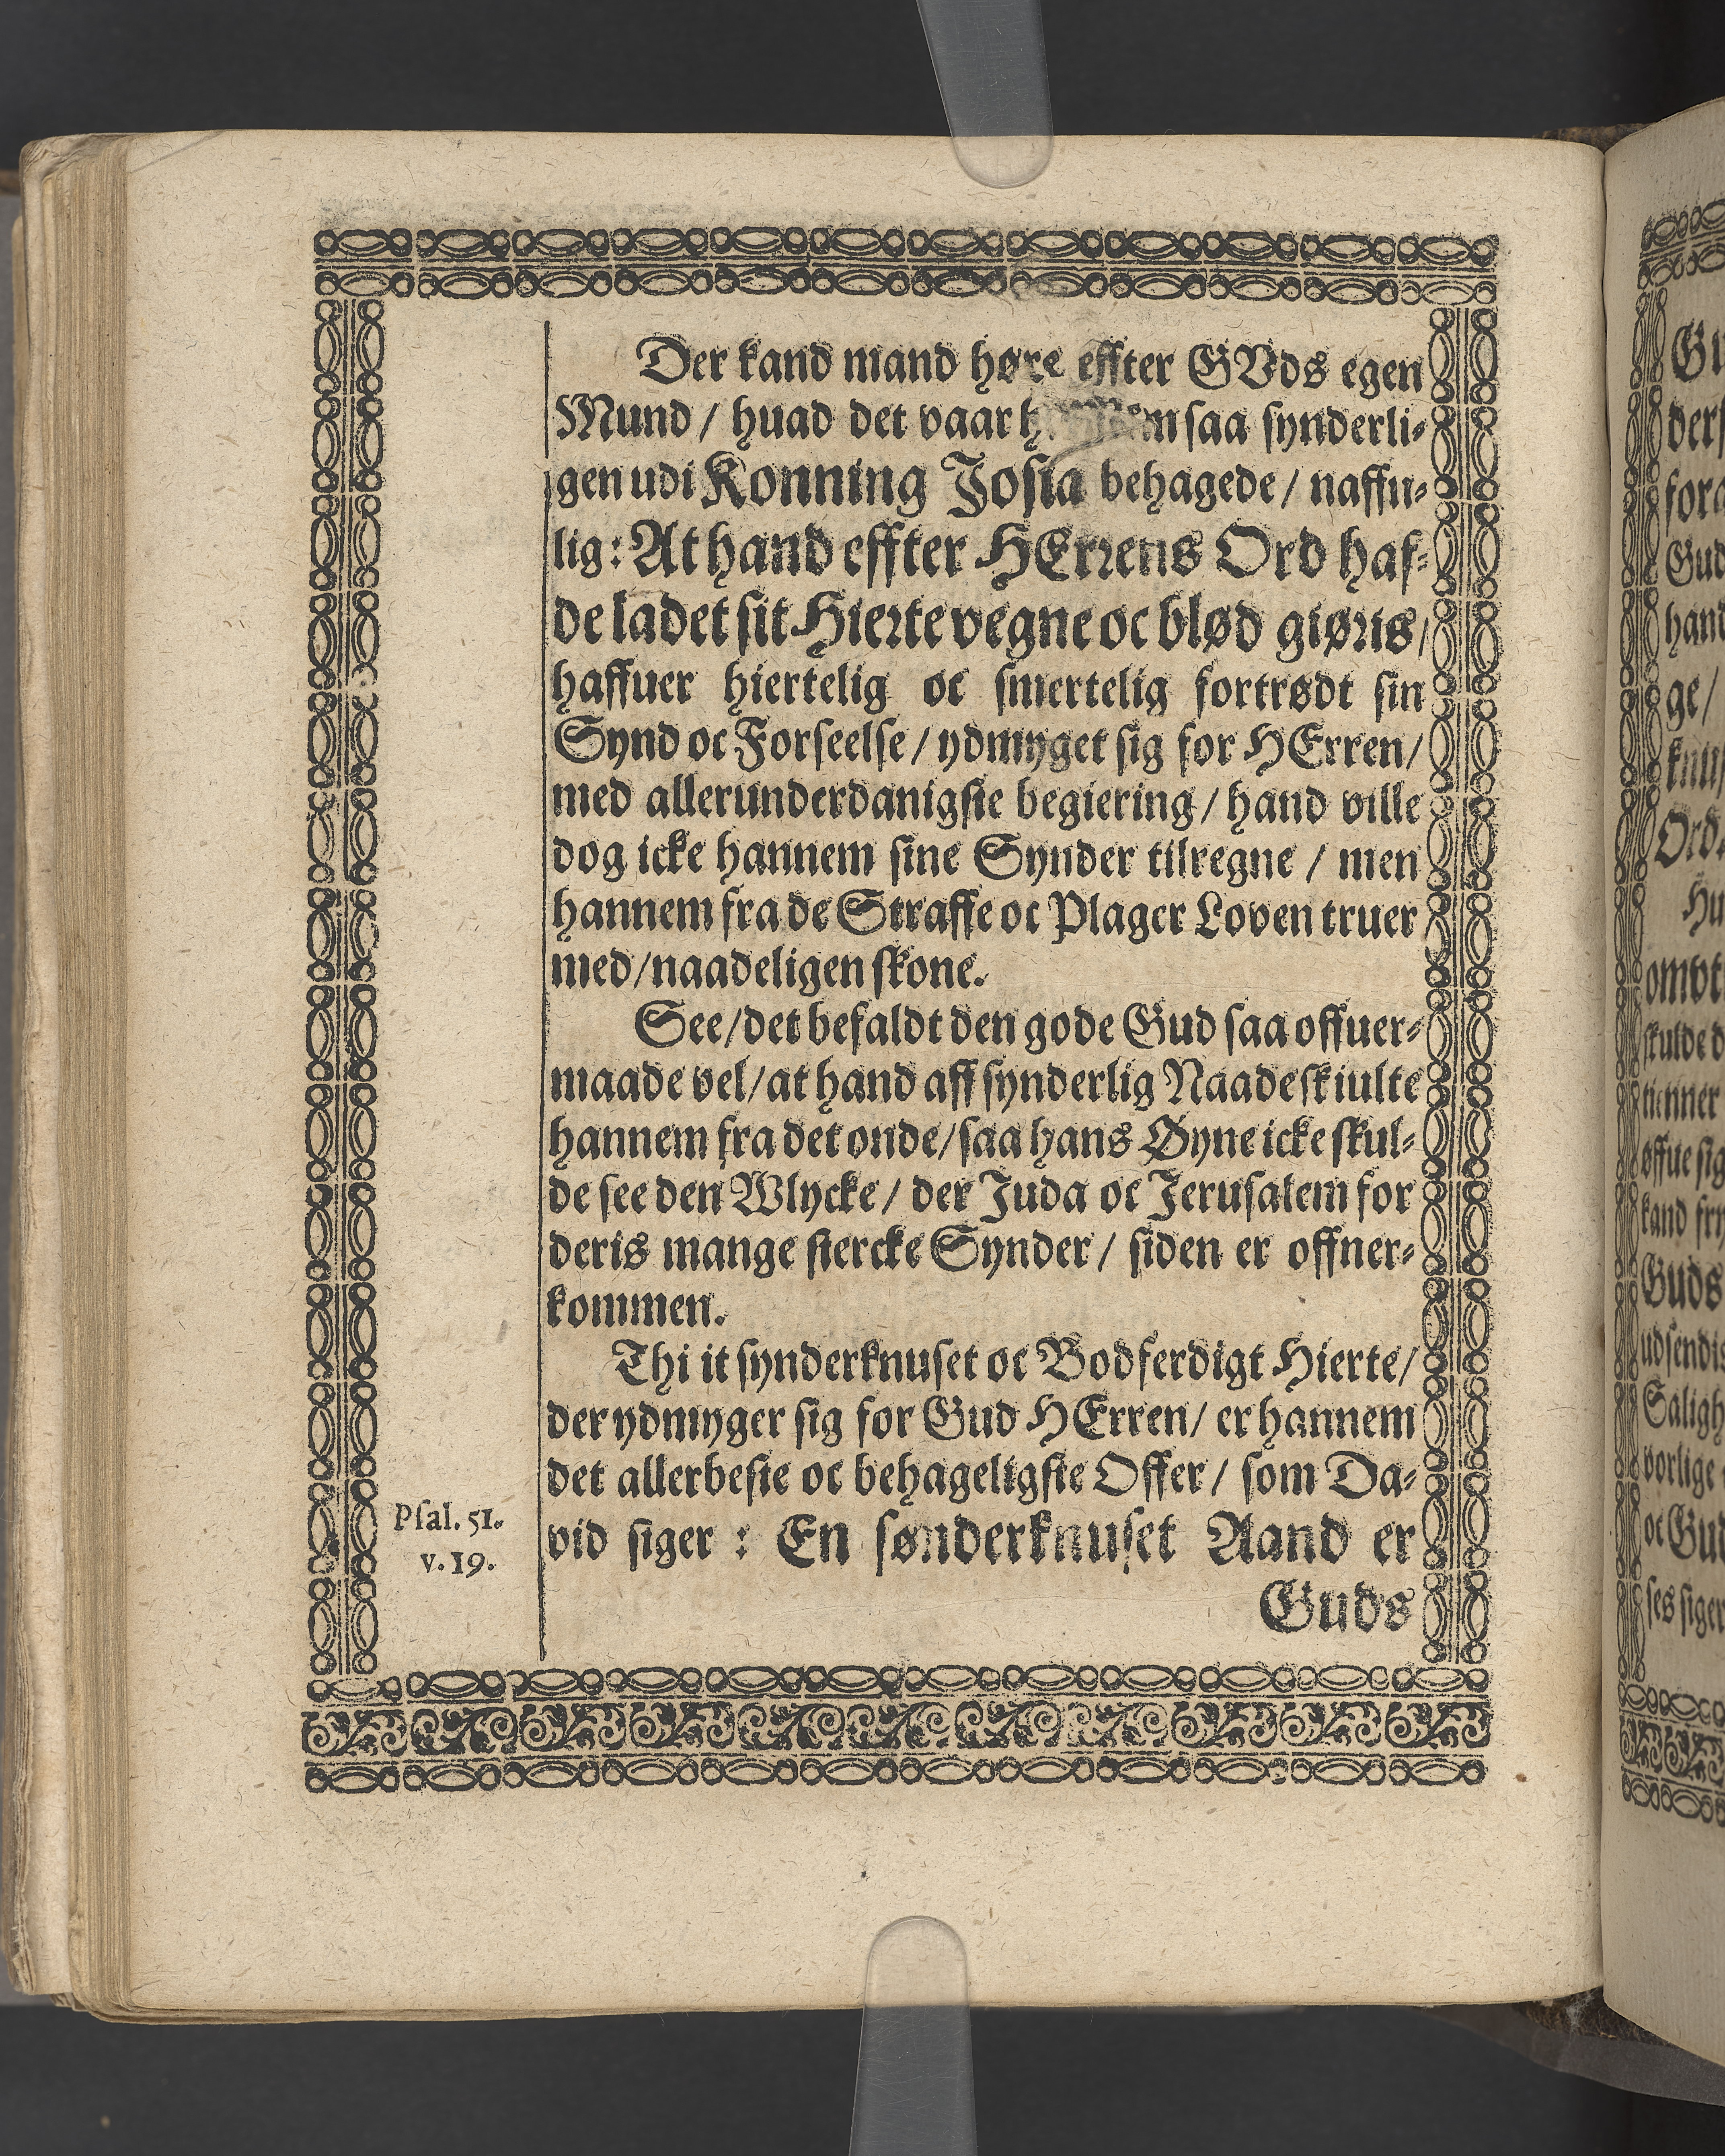 Der kand mand høre effter GVds egen
Mund / huad det vaar saa synderli-
gen udi Konning Josia behagede / naffn-
lig: At hand effter HErrens Ord haf-
de ladet sit Hierte vegne oc blød giøris /
haffuer hiertelig oc smertelig fortrødt sin
Synd oc Forseelse / ydmyget sig for HErren /
med allerunderdanigste begiering / hand ville
dog icke hannem sine Synder tilregne / men
hannem fra de Straffe oc Plager Loven truer
med / naadeligen skone.
See / det befaldt den gode Gud saa offuer-
maade vel / at hand aff synderlig Naade skiulte
hannem fra det onde / saa hans Øyne icke skul-
de see den Wlycke / der Juda oc Jerusalem for
deris mange stercke Synder / siden er offner-
kommen.
Thi it synderknuset oc Bodferdigt Hierte /
der ydmyger sig for Gud HErren / er hannem
det allerbeste oc behageligste Offer / som Da-
Psal. 51.
v. 19.
vid siger : En sønderknuset Aand er
Guds